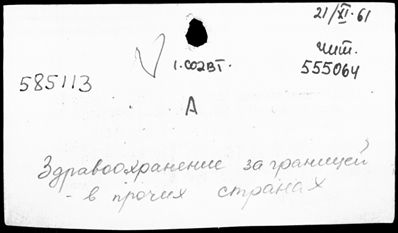 21/XI-61
1.002ВТ.
чит.
555064
585113
А
Здравоохранение за границей
- в прочих странах